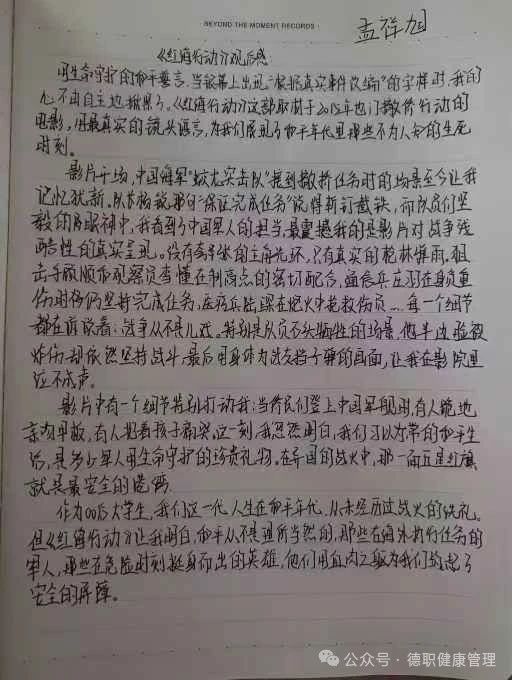 BEYOND THE MOMENT RECORDS
孟祥旭
《红海行动》观后感
用生命守护的和平誓言。当银幕上出现"根据真实事件改编"的字样时,我的
心不由自主地揪紧了。《红海行动》这部取材于2015年也门撤侨行动的
电影,用最真实的镜头语言,为我们展现了和平年代里那些不为人知的生死
时刻。
影片开场,中国海军"蛟龙突击队"接到撤侨任务时的场景至今让我
记忆犹新。队长杨锐那句"保证完成任务"说得斩钉截铁,而队员们坚
毅的眼神中,我看到了中国军人的担当。最震撼我的是影片对战争残
酷性的真实呈现。没有夸张的主角光环,只有真实的枪林弹雨。狙
击手顾顺和观察员李懂在制高点的密切配合,通信兵庄羽在身负重
伤时仍坚持完成任务,医疗兵陆琛在炮火中抢救伤员……每一个细节
都在诉说着:战争从不是儿戏。特别是队员石头牺牲的场景,他半边脸被
炸伤却依然坚持战斗,最后用身体为战友挡子弹的画面,让我在影院里
泣不成声。
影片中有一个细节特别打动我:当侨民们登上中国军舰时,有人跪地
亲吻甲板,有人抱着孩子痛哭。这一刻我忽然明白,我们习以为常的和平生
活,是多少军人用生命守护的珍贵礼物。在异国的战火中,那一面五星红旗
就是最安全的港湾。
作为00后大学生,我们这一代人生在和平年代,从未经历过战火的洗礼。
但《红海行动》让我明白,和平从不是理所当然的,那些在海外执行任务的
军人,那些在危险时刻挺身而出的英雄,他们用血肉之躯为我们筑起了
安全的屏障。
公众号·德职健康管理